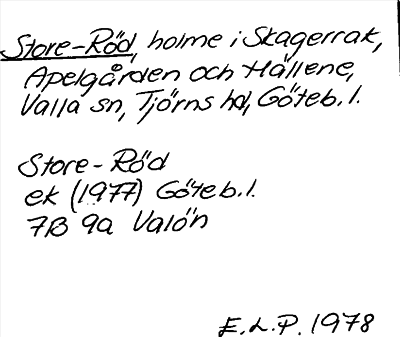 Store-Röd, holme i Skagerrak,
Apelgården och Hällene,
Valla sn, Tjörns hd, Göteb. l.
Store-Röd
ek (1977) Göteb. l.
7B 9a Valön
E.L.P. 1978